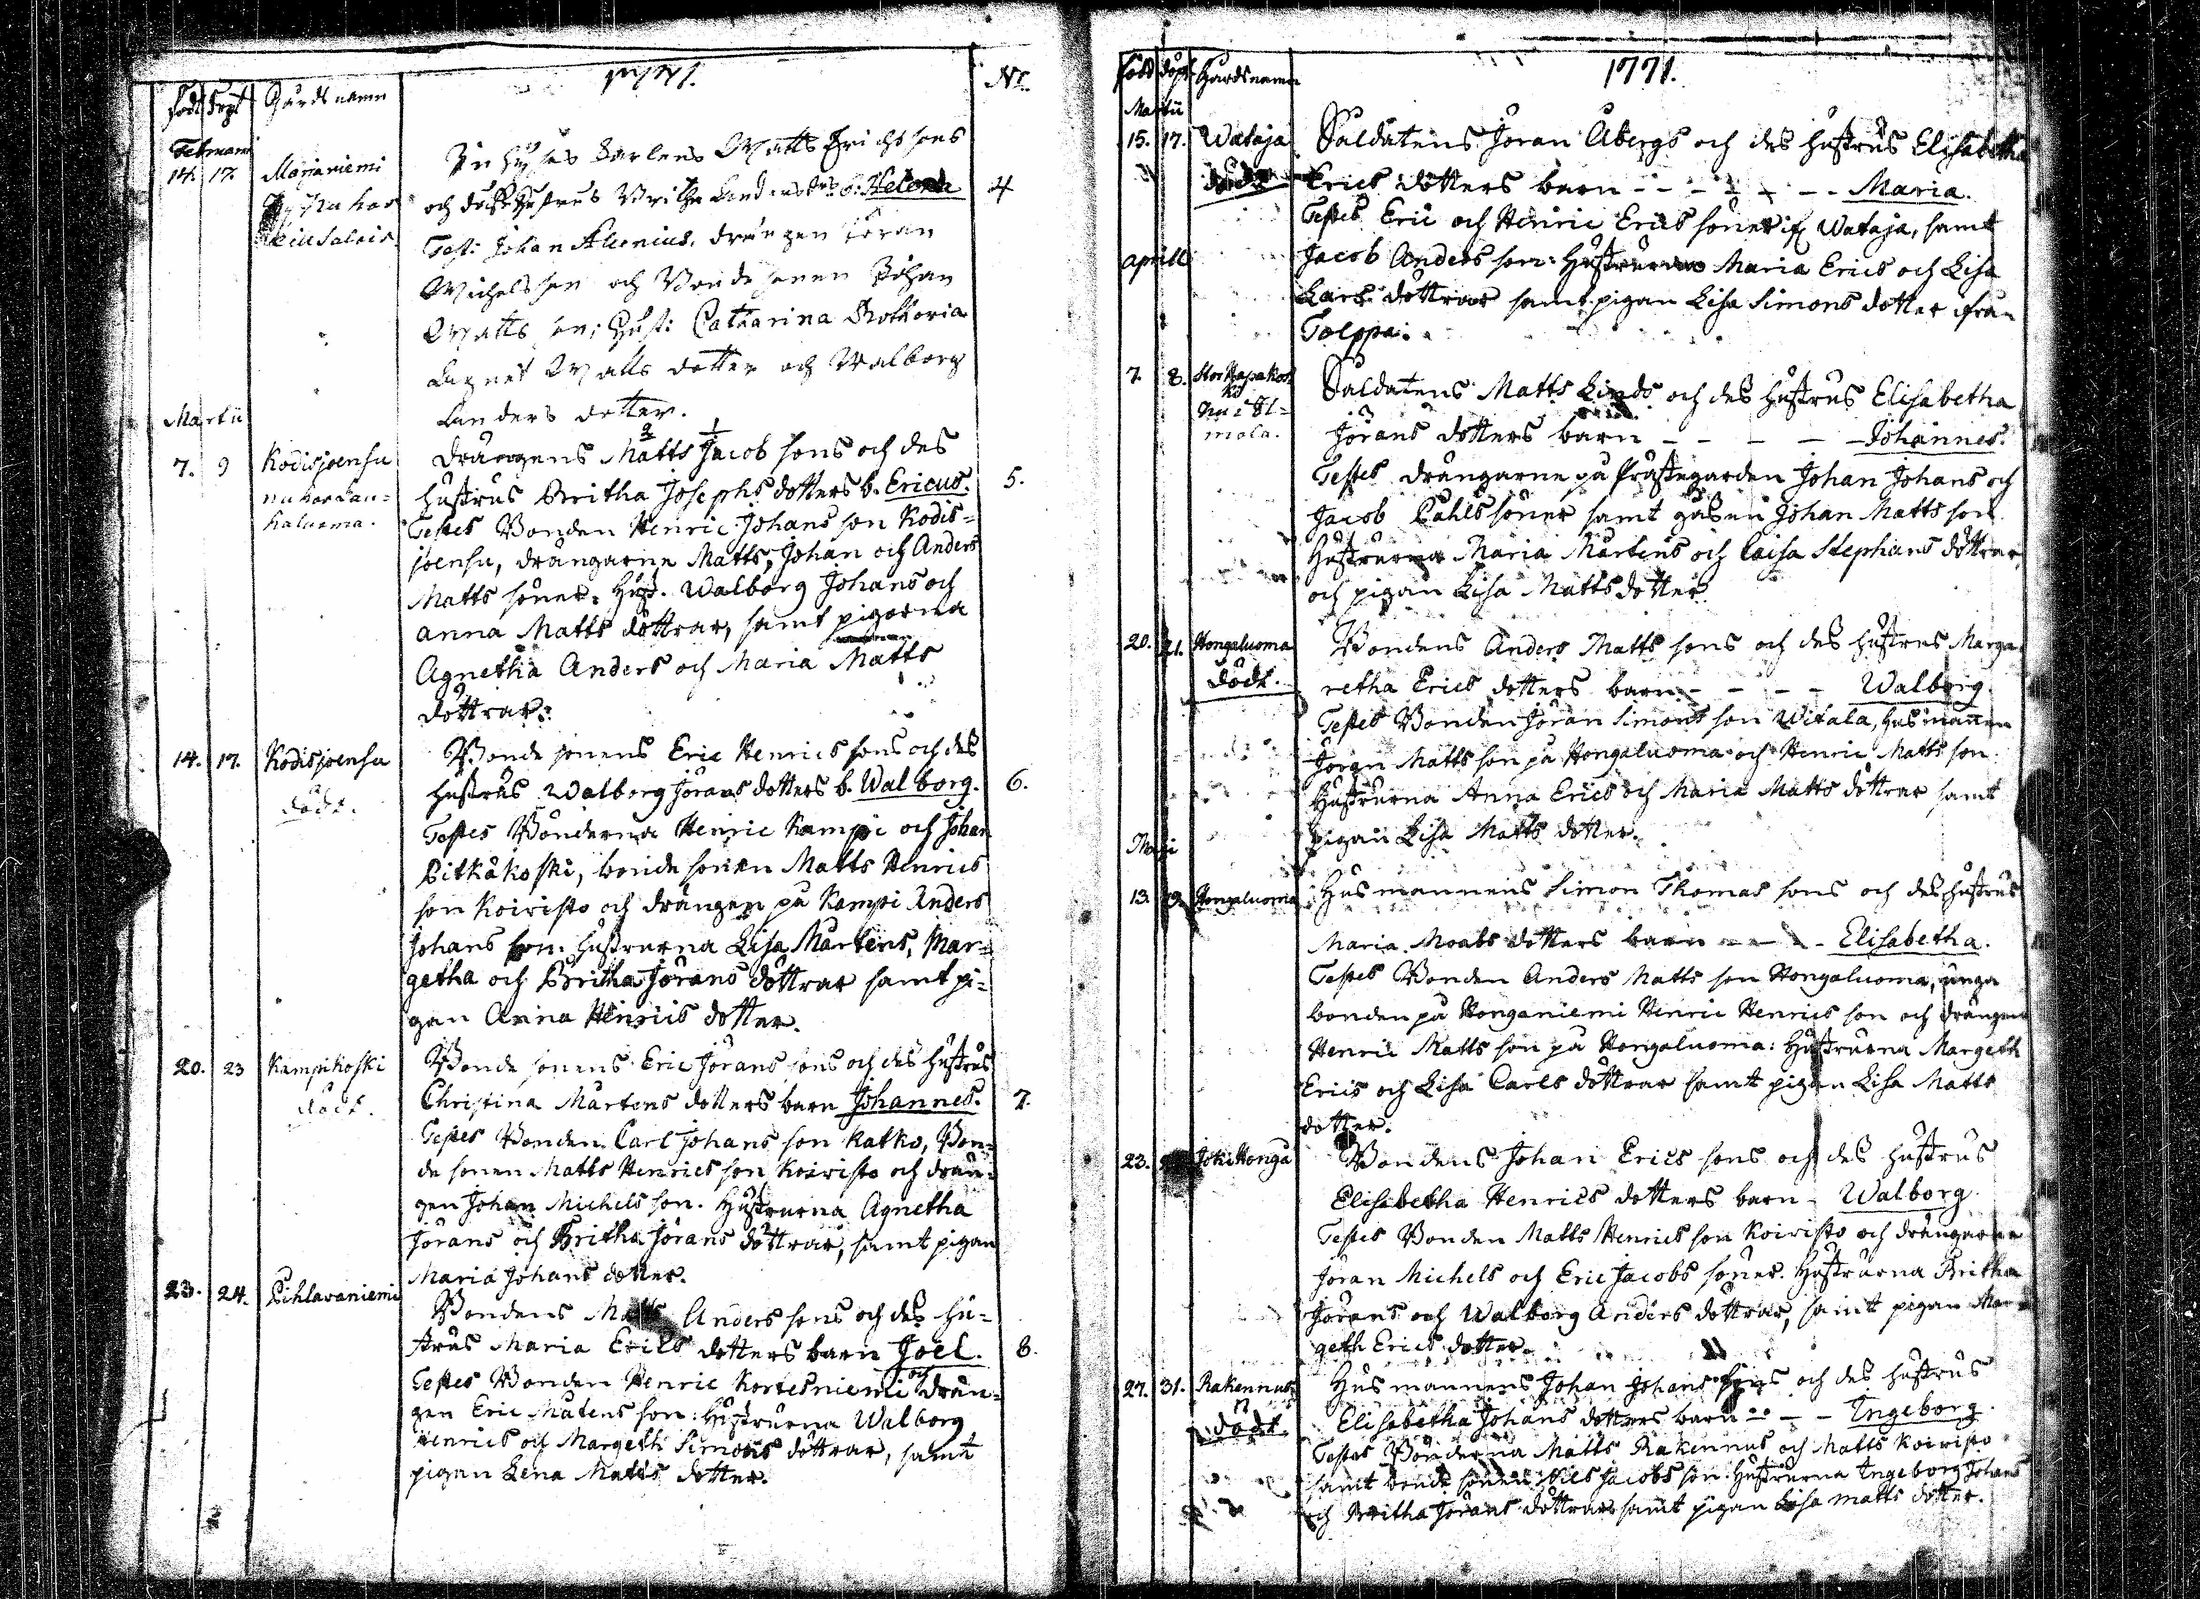 1771.
Född Döpt Gårds namn
No.
Februarii
14. 17. Marjaniemi
Inhyses Karlens Matts Erichs sons
och dess hustrus Britha Lend dotters b. Helena
4
Test: Johan Alcenius, drängen Jöran
Michelsson och Bonde sonen Johan
Matts son; Hust: Catharina Rothovia
Agnet Matts dotter och Walborg
Anders dotter.
Martii
7. 9 Kodisjoensu
nu har Lau=
kaluoma.
2 1
Drängens Matts Jacob sons och des
hustrus Britha Josephs dotters b. Ericus.
5.
Testes Bonden Henric Johans son Kodis=
joensu, drängarne Matts, Johan och Anders
Matts söner. Hust. Walborg Johans och
Anna Matts döttrar, samt pigorna
Agnetha Anders och Maria Matts
döttrar.
14. 17. Kodisjoensu
död.
Bonde sonens Eric Henrics sons och des
hustrus Walborg Jörans dotters b. Walborg.
6.
Testes Bönderna Henric Kampi och Johan
Pitkäkoski, bonde sonen Matts Henrics
son Koivisto och drängen på Kampi Anders
Johans son. hustrurna Lisa Mårtens, Mar=
getha och Britha Jörans döttrar samt pi=
gan Anna Henrics dotter.
20. 23 Kampikoski
död.
Bonde sonens Eric Jörans sons och des hustrus
Christina Mårtens dotters barn Johannes.
7.
Testes Bonden Carl Johans son Katko, Bon=
de sonen Matts Henrics son Koivisto och drän=
gen Johan Michels son. Hustrurna Agnetha
Jörans och Britha Jörans döttrar, samt pigan
Maria Johans dotter.
23. 24. Pihlavaniemi
Bondens Matts Anders sons och des hu=
strus Maria Erics dotters barn Joel.
8.
Testes Bonden Henric Kortesniemi och drän=
gen Eric Matens son: Hustrurna Walborg
Henrics och Margeth Simons döttrar, samt
pigan Lena Matts dotter.
1771.
född döpt Gårdsnamn
Martii
15. 17. Wataja
död
Soldatens Jöran Åbergs och des hustrus Elisabetha
Erics dotters barn - - - - - - Maria.
Testes Eric och Henric Erics söner if Wataja, samt
Jacob Anders son: Hustrurna Maria Erics och Lisa
Lars döttrar samt pigan Lisa Simons dotter ifrån
Tolppa.
Aprill
7. 8. Stor Papakos
ko
nu i Il=
mola.
Soldatens Matts Linds och des hustrus Elisabetha
Jörans dotters barn - - - - - Johannes.
Testes drängarne på Prästegården Johan Johans och
Jacob Pahls söner samt Johan Matts son
Hustrurna Maria Mårtens och Caisa Stephans döttrar
och pigan Lisa Matts dotter
20. 21. Hongaluoma
död.
Bondens Anders Matts sons och des hustrus Marga=
retha Erics dotters barn - - - - Walborg.
Testes Bonden Jöran Simons son Witala, husmannen
Jöran Matts son på Hongaluoma och Henric Matts son.
Hustrurna Anna Erics och Maria Matts döttrar samt
pigan Lisa Matts dotter.
Maji
13. 19. Hongaluoma
Husmannens Simon Thomas sons och des hustrus
Maria Moabs dotters barn - - - - Elisabetha.
Testes Bonden Anders Matts son Hongaluoma, unga
bonden på Honganiemi Henric Henrics son och drängen
Henric Matts son på Hongaluoma: Hustrurna Margeth
Erics och Lisa Carls döttrar samt pigan Lisa Matts
dotter.
23. Joki Honga
Bondens Johan Erics sons och des hustrus
Elisabetha Henrics dotters barn - Walborg.
Testes Bonden Matts Henrics son Koivisto och drängarne
Jöran Michels och Eric Jacobs söner. Hustrurna Britha
Jörans och Walborg Anders döttrar, samt pigan Mar=
geth Erics dotter.
27. 31. Rakennus
död.
Husmannens Johan Johans sons och des hustrus
Elisabetha Johans dotters barn - - - Ingeborg.
Testes Bönderna Matts Rakennus och Matts Koivisto
samt bonde sonen Nils Jacobs son. Hustrurna Ingeborg Johans
och Britha Jörans döttrar samt pigan Lisa Matts dotter.